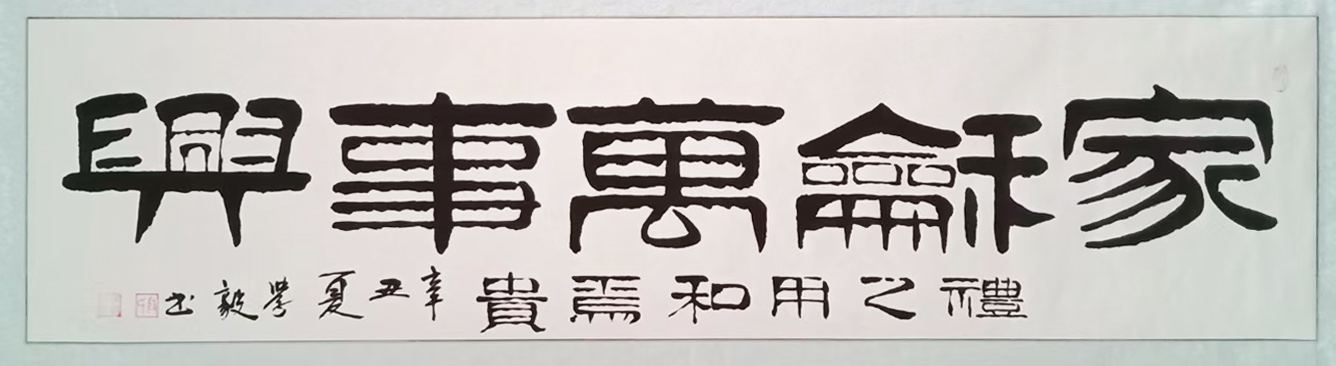 家龢萬事興
禮之用和焉貴
辛丑夏學毅书